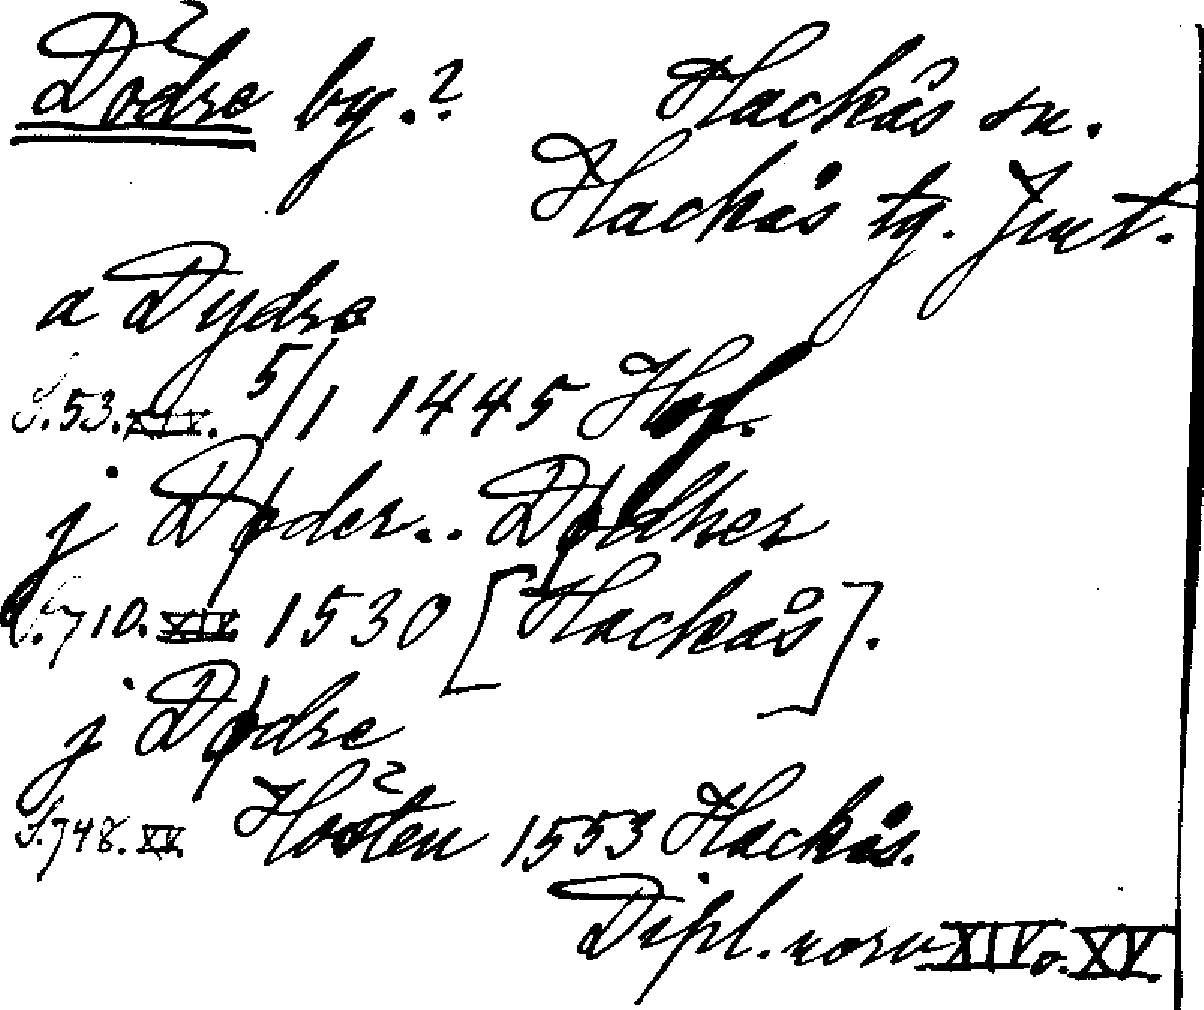 Dödre by.? Hackås sn.
Hackås tg. Jmt.
a Dydre
S.53.XIV. 5/1 1445 Hof.
j Døder.. Dødher
S.710.XIV. 1530 [Hackås].
j Dødre
S.748.XV. Hösten 1553 Hackås.
Dipl. norv. XIV o. XV.